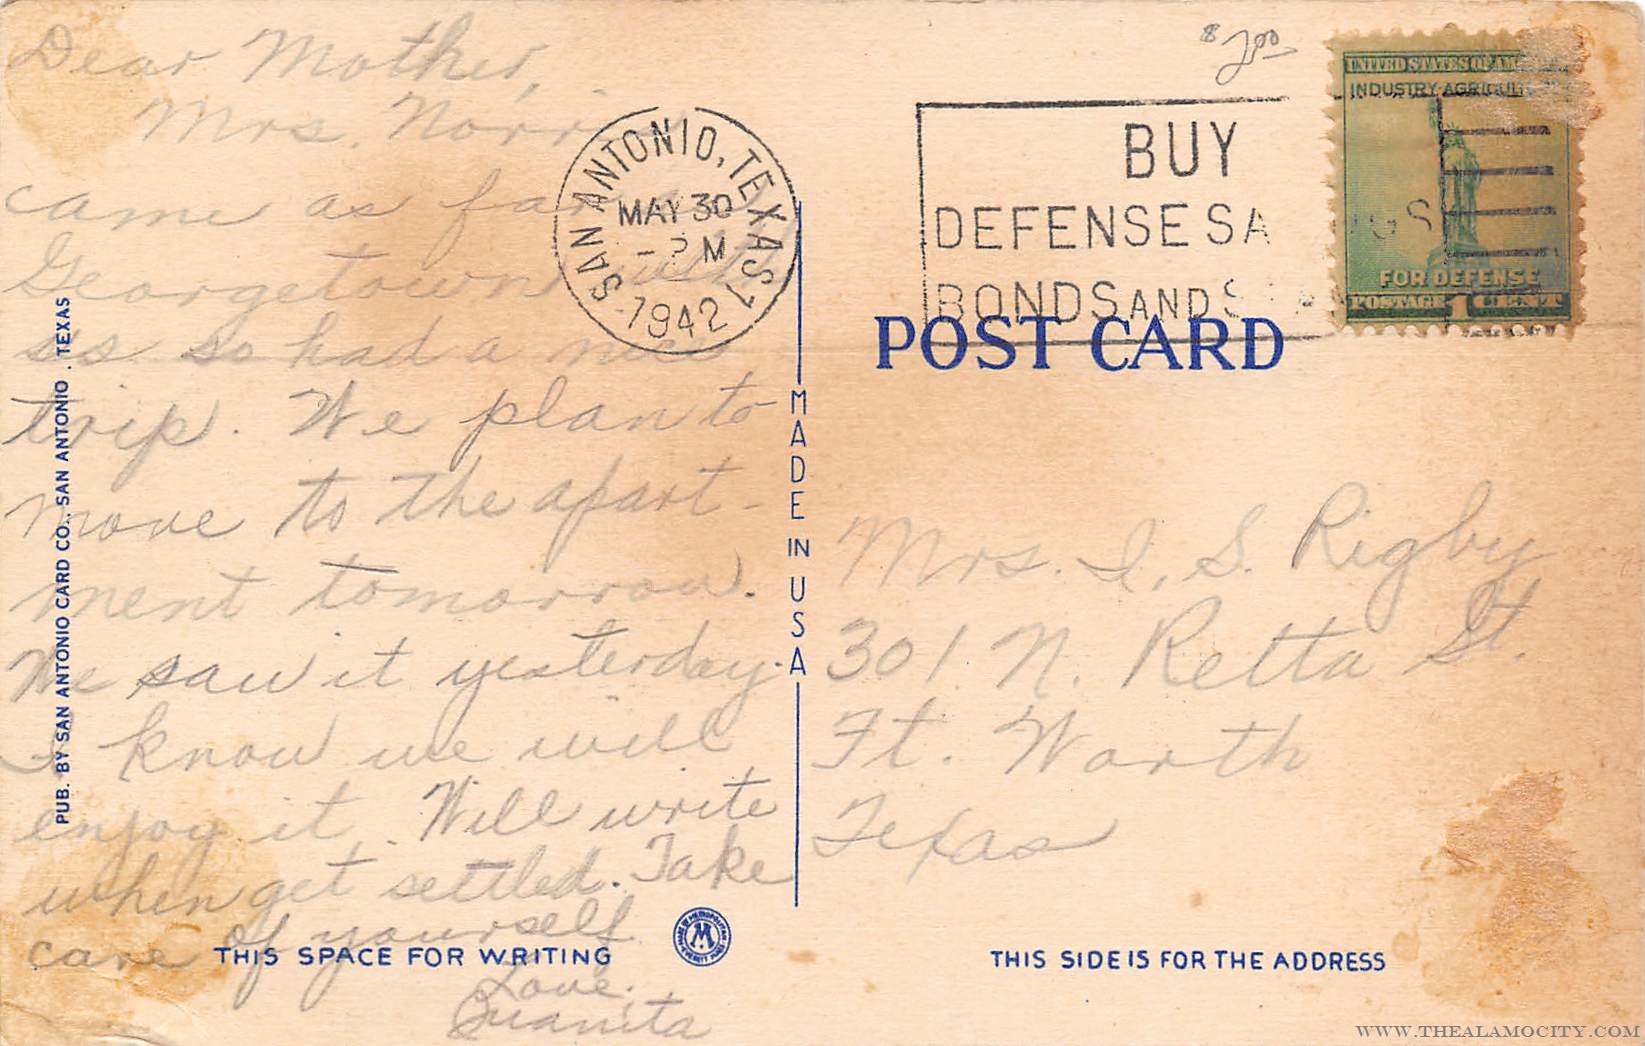 Dear Mother,
Mrs. Norris
came as far as
Georgetown with
us so had a nice
trip. We plan to
move to the apart-
ment tomorrow.
We saw it yesterday.
I know we will
enjoy it. Will write
when get settled. Take
care of yourself
Love,
Juanita
PUB. BY SAN ANTONIO CARD CO., SAN ANTONIO, TEXAS
THIS SPACE FOR WRITING
MADE BY METROPOLITAN
M
EVERETT MASS
MADE IN USA
SAN ANTONIO, TEXAS 1
MAY 30
PM
1942
$2.00
BUY
DEFENSE SA GS
BONDS AND S
UNITED STATES OF AM
INDUSTRY AGRICULT
FOR DEFENSE
POSTAGE 1 CENT
POST CARD
Mrs. I. S. Rigby
301 N. Retta St.
Ft. Worth
Texas
THIS SIDE IS FOR THE ADDRESS
WWW.THEALAMOCITY.COM